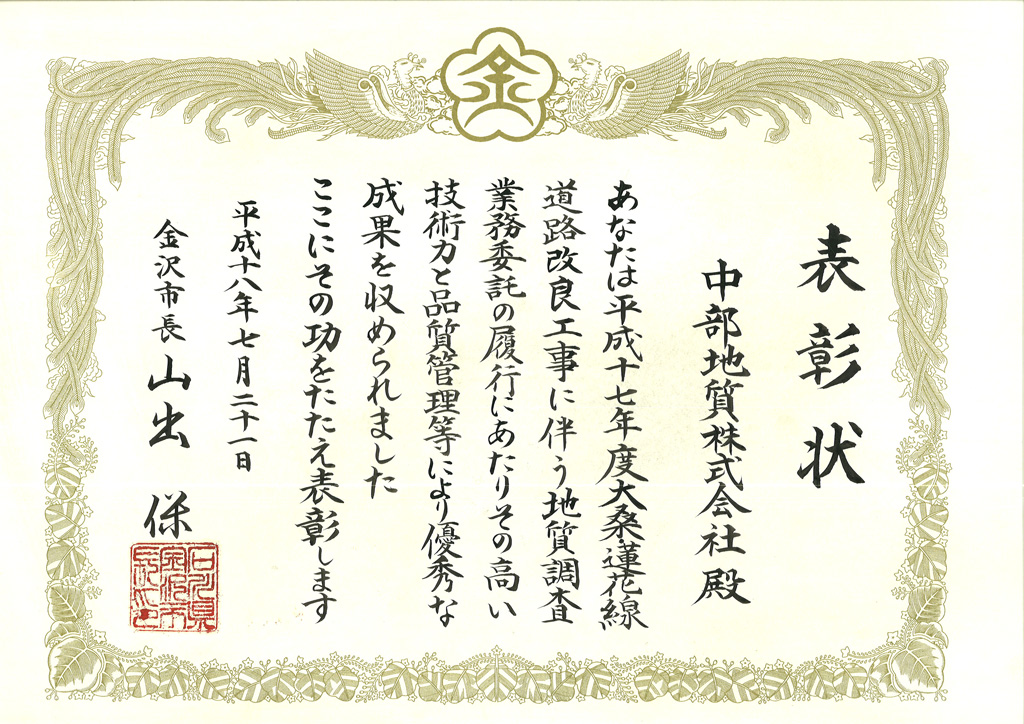 金
表彰状
中部地質株式会社殿
あなたは平成十七年度大桑・蓮花線
道路改良工事に伴う地質調査
業務委託の履行にあたりその高い
技術力と品質管理等により優秀な
成果を収められました
ここにその功をたたえ表彰します
平成十八年七月二十一日
金沢市長 山出 保
石川県
金沢市
長之印